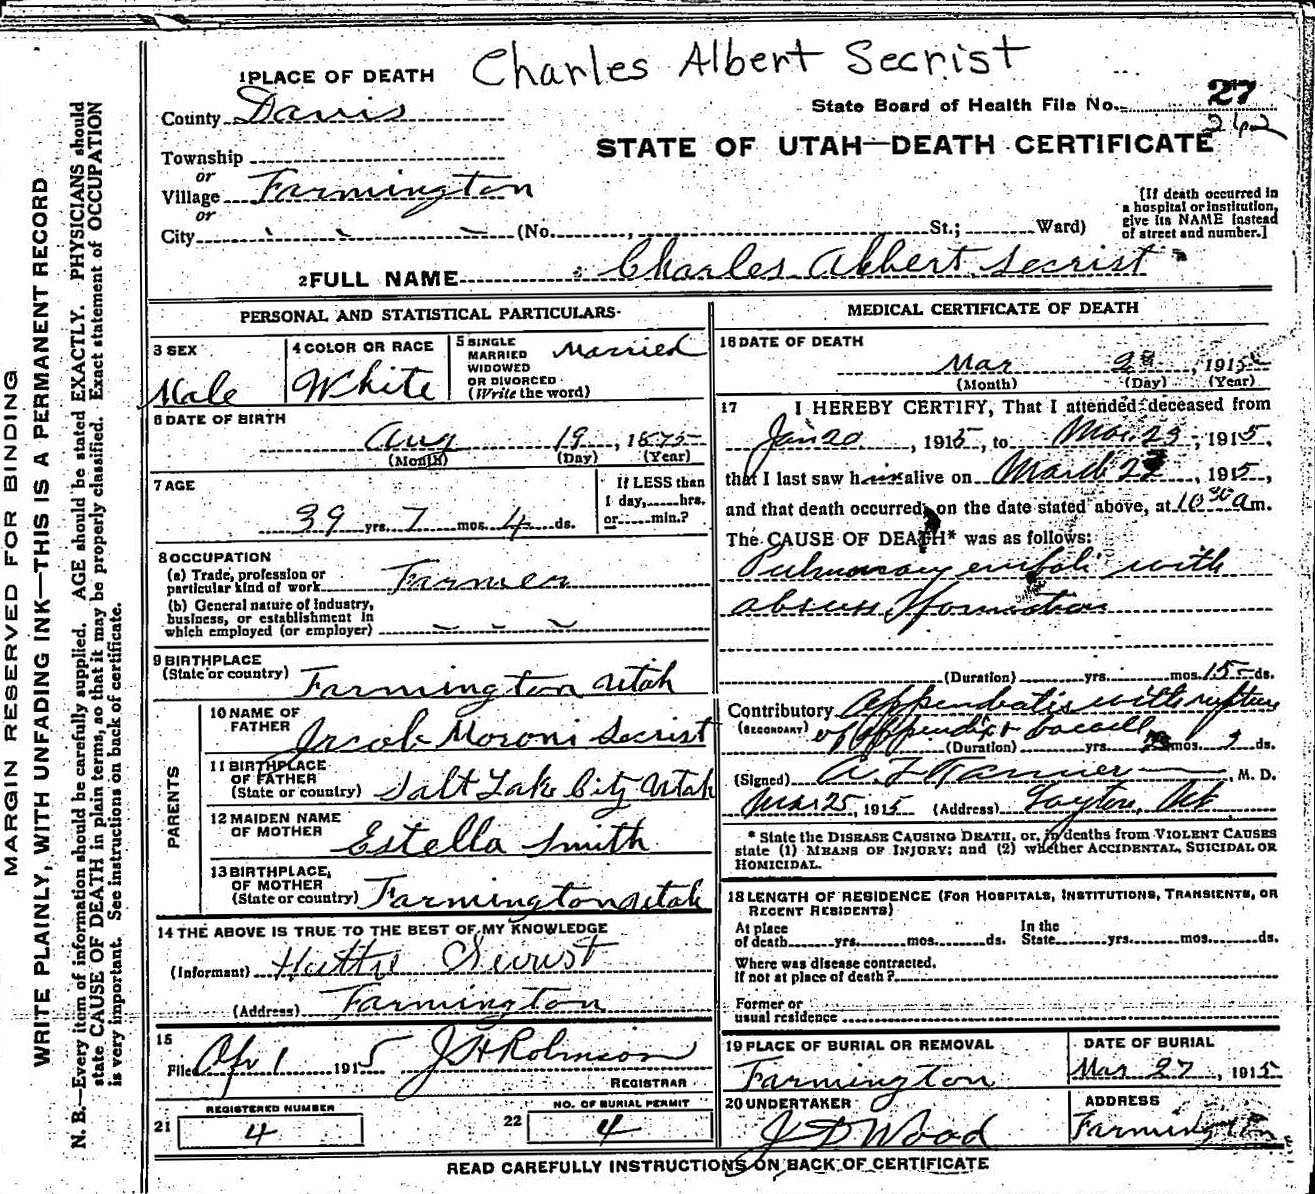 Charles Albert Secrist
1 PLACE OF DEATH
County Davis
State Board of Health File No. 27
262
STATE OF UTAH—DEATH CERTIFICATE
Township
or
Village Farmington
or
City (No. , St.; Ward)
[If death occurred in
a hospital or institution,
give its NAME instead
of street and number.]
2 FULL NAME Charles Albert Secrist
PERSONAL AND STATISTICAL PARTICULARS
3 SEX
Male
4 COLOR OR RACE
White
5 SINGLE
MARRIED
WIDOWED
OR DIVORCED
(Write the word)
Married
6 DATE OF BIRTH
Aug 19, 1875
(Month) (Day) (Year)
7 AGE
39 yrs. 7 mos. 4 ds.
If LESS than
1 day, hrs.
or min.?
8 OCCUPATION
(a) Trade, profession or
particular kind of work Farmer
(b) General nature of industry,
business, or establishment in
which employed (or employer)
9 BIRTHPLACE
(State or country) Farmington Utah
PARENTS
10 NAME OF
FATHER Jacob Moroni Secrist
11 BIRTHPLACE
OF FATHER
(State or country) Salt Lake City Utah
12 MAIDEN NAME
OF MOTHER Estella Smith
13 BIRTHPLACE,
OF MOTHER
(State or country) Farmington Utah
14 THE ABOVE IS TRUE TO THE BEST OF MY KNOWLEDGE
(Informant) Hattie Secrist
(Address) Farmington
15
Filed Apr 1 1915 J H Robinson
REGISTRAR
21 REGISTERED NUMBER
4
22 NO. OF BURIAL PERMIT
4
MEDICAL CERTIFICATE OF DEATH
16 DATE OF DEATH
Mar , 1915
(Month) (Day) (Year)
17 I HEREBY CERTIFY, That I attended deceased from
Jan 20, 1915, to Mar. 23, 1915,
that I last saw him alive on March , 1915,
and that death occurred, on the date stated above, at 10 30 a m.
The CAUSE OF DEATH* was as follows:
Pulmonary emboli with
abscess formation
(Duration) yrs. mos. 15 ds.
Contributory Appendicitis with rupture
(SECONDARY) of appendix &
(Duration) yrs. mos. ds.
(Signed) A. Z. Tanner M. D.
Mar 25, 1915 (Address) Layton, Ut
* State the DISEASE CAUSING DEATH, or, in deaths from VIOLENT CAUSES
state (1) MEANS OF INJURY; and (2) whether ACCIDENTAL, SUICIDAL OR
HOMICIDAL.
18 LENGTH OF RESIDENCE (FOR HOSPITALS, INSTITUTIONS, TRANSIENTS, OR
RECENT RESIDENTS)
At place
of death yrs. mos. ds.
In the
State yrs. mos. ds.
Where was disease contracted,
if not at place of death?
Former or
usual residence
19 PLACE OF BURIAL OR REMOVAL
Farmington
DATE OF BURIAL
Mar 27, 1915
20 UNDERTAKER
J D Wood
ADDRESS
Farmington
READ CAREFULLY INSTRUCTIONS ON BACK OF CERTIFICATE
MARGIN RESERVED FOR BINDING
WRITE PLAINLY, WITH UNFADING INK—THIS IS A PERMANENT RECORD
N. B.—Every item of information should be carefully supplied. AGE should be stated EXACTLY. PHYSICIANS should
state CAUSE OF DEATH in plain terms, so that it may be properly classified. Exact statement of OCCUPATION
is very important. See instructions on back of certificate.